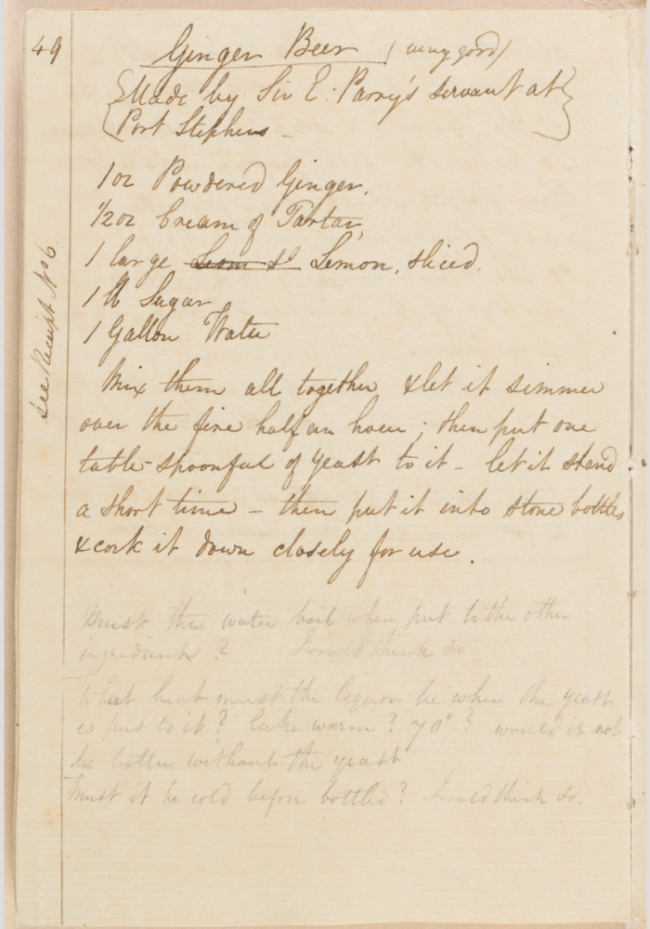 49
Ginger Beer (very good)
Made by Sir E: Parry's servant at
Port Stephens -
1 oz Powdered Ginger.
1/2 oz Cream of Tartar,
1 large Lemon, sliced.
1 lb Sugar
1 Gallon Water
see Receipt No 6
Mix them all together & let it simmer
over the fire half an hour; then put one
table-spoonful of yeast to it - let it stand
a short time - then put it into stone bottles
& cork it down closely for use.
Must the water boil when put to the other
ingredients? I would think so
What heat must the liquor be when the yeast
is put to it? luke warm? 70°? would it not
be better without the yeast
Must it be cold before bottled? I would think so.